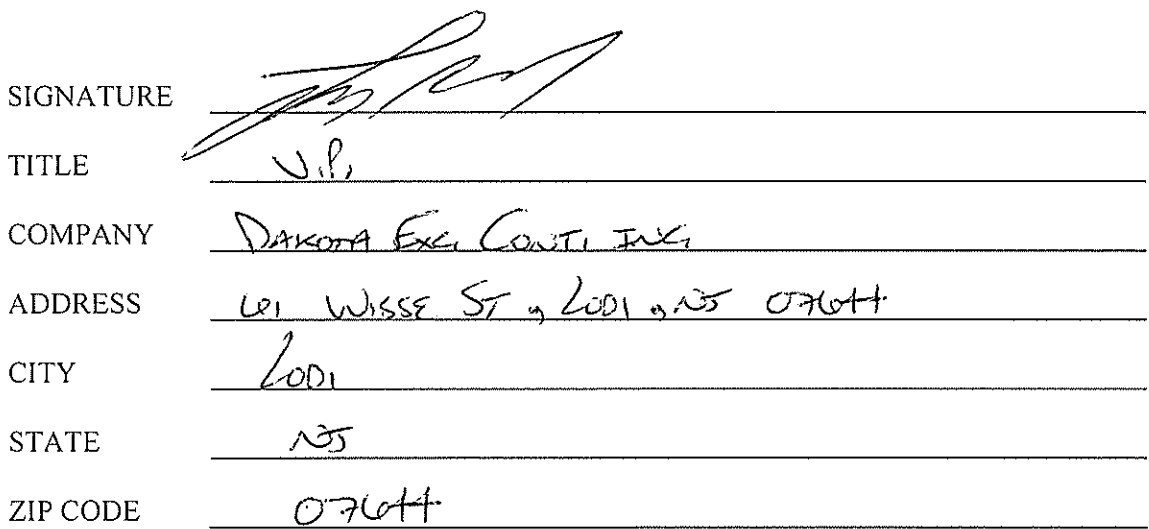 SIGNATURE
TITLE V.P.
COMPANY DAKOTA EXC. CONT. INC.
ADDRESS 61 WISSE ST, LODI, NJ 07644
CITY LODI
STATE NJ
ZIP CODE 07644